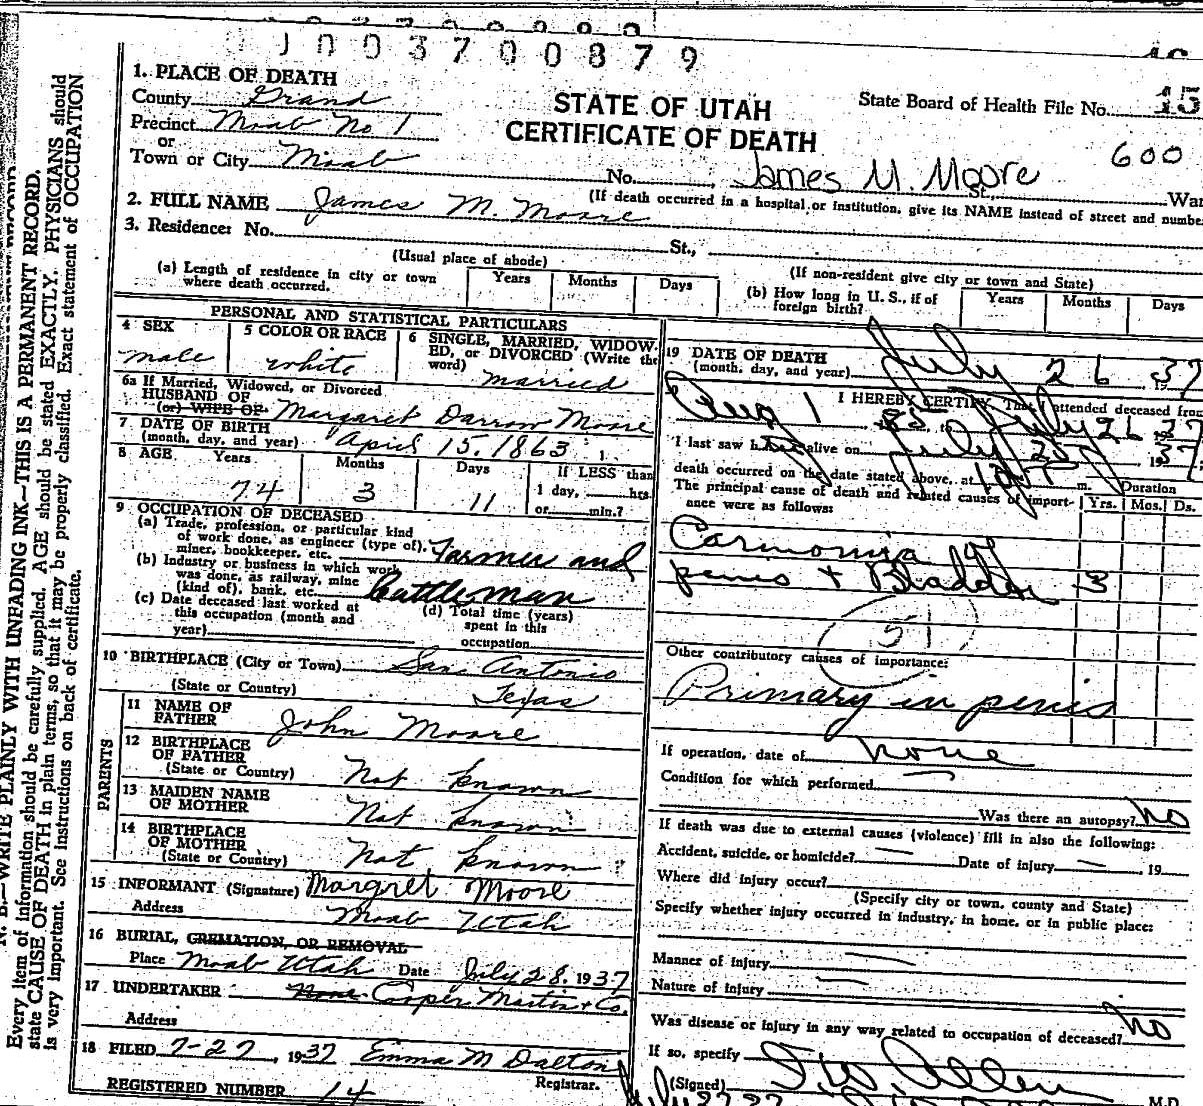 1003700879
1. PLACE OF DEATH
County Grand
STATE OF UTAH
State Board of Health File No. 15
Precinct Moab No 1
CERTIFICATE OF DEATH
600
or
Town or City Moab No. James M. Moore St., War
(If death occurred in a hospital or institution, give its NAME instead of street and numbe
2. FULL NAME James M. Moore
3. Residence: No. St.,
(Usual place of abode)
(If non-resident give city or town and State)
(a) Length of residence in city or town where death occurred. Years Months Days
(b) How long in U. S., if of foreign birth? Years Months Days
PERSONAL AND STATISTICAL PARTICULARS
4 SEX
male
5 COLOR OR RACE
white
6 SINGLE, MARRIED, WIDOW-
ED, or DIVORCED (Write the
word) married
6a If Married, Widowed, or Divorced
HUSBAND OF
(or) WIFE OF Margaret Darrow Moore
7 DATE OF BIRTH
(month, day, and year) April 15, 1863
8 AGE Years Months Days If LESS than
74 3 11 1 day, hrs
or min.?
9 OCCUPATION OF DECEASED
(a) Trade, profession, or particular kind
of work done, as engineer (type of),
miner, bookkeeper, etc. Farmer and
(b) Industry or business in which work
was done, as railway, mine
(kind of), bank, etc. Cattleman
(c) Date deceased last worked at
this occupation (month and
year)
(d) Total time (years)
spent in this
occupation
10 BIRTHPLACE (City or Town) San Antonio
(State or Country) Texas
PARENTS
11 NAME OF
FATHER John Moore
12 BIRTHPLACE
OF FATHER
(State or Country) Not known
13 MAIDEN NAME
OF MOTHER Not known
14 BIRTHPLACE
OF MOTHER
(State or Country) Not known
15 INFORMANT (Signature) Margret Moore
Address Moab Utah
16 BURIAL, CREMATION, OR REMOVAL
Place Moab Utah Date July 28, 1937
17 UNDERTAKER None Cooper Martin & Co.
Address
18 FILED 7-27, 1937 Emma M Dalton
Registrar.
REGISTERED NUMBER 14
19 DATE OF DEATH
(month, day, and year) July 26 1937
I HEREBY CERTIFY, That I attended deceased from
Aug 1 35, to July 26 1937
I last saw him alive on July 25, 1937
death occurred on the date stated above, at m. Duration
The principal cause of death and related causes of import-
ance were as follows: Yrs. Mos. Ds.
Carcinomia of
penis + Bladder 3
51
Other contributory causes of importance:
Primary in penis
If operation, date of none
Condition for which performed
Was there an autopsy? No
If death was due to external causes (violence) fill in also the following:
Accident, suicide, or homicide? — Date of injury —, 19
Where did injury occur?
(Specify city or town, county and State)
Specify whether injury occurred in industry, in home, or in public place:
Manner of injury —
Nature of injury —
Was disease or injury in any way related to occupation of deceased? No
If so, specify
(Signed) I. W. Allen
M.D.
N. B.—WRITE PLAINLY WITH UNFADING INK—THIS IS A PERMANENT RECORD.
Every item of information should be carefully supplied. AGE should be stated EXACTLY. PHYSICIANS should
state CAUSE OF DEATH in plain terms, so that it may be properly classified. Exact statement of OCCUPATION
is very important. See instructions on back of certificate.